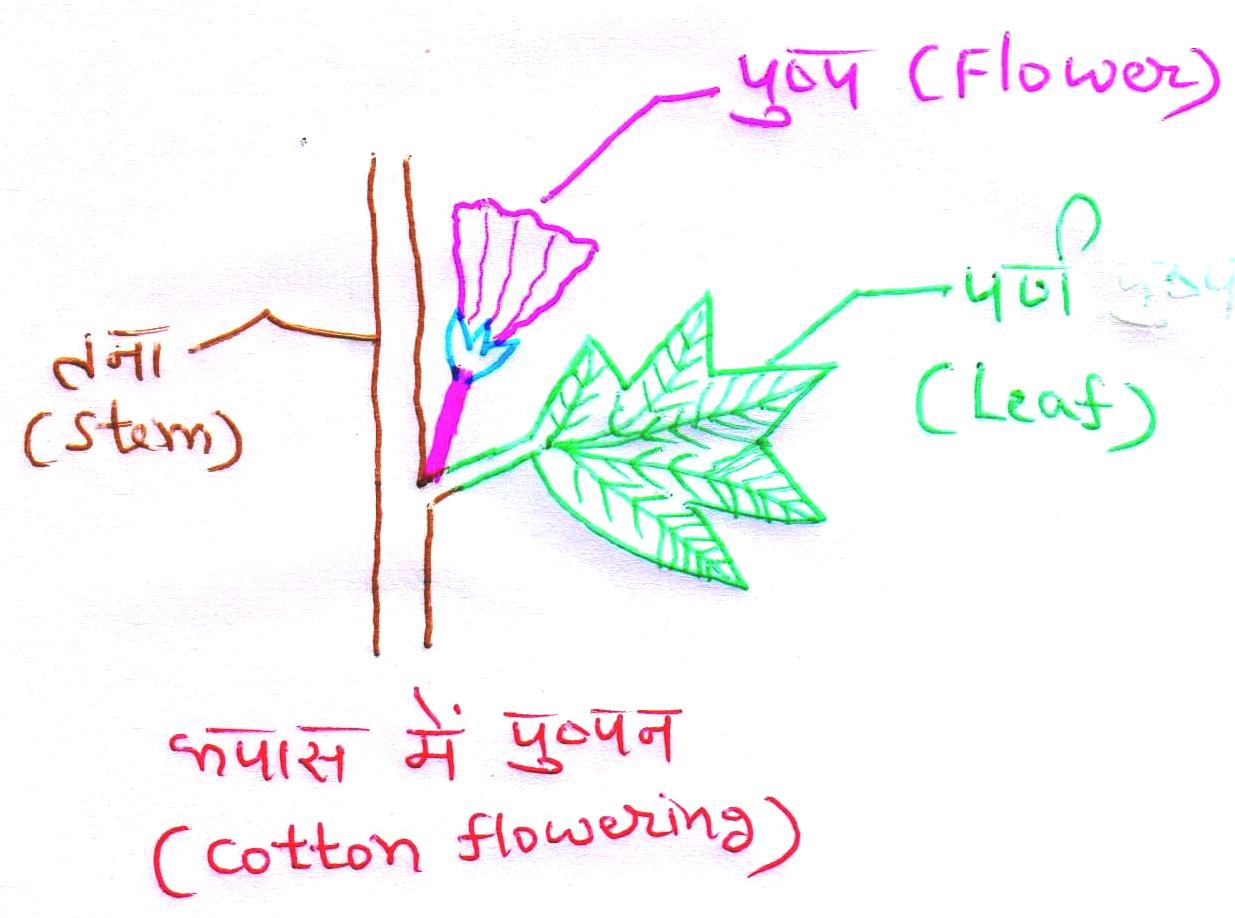 पुष्प (Flower)
पर्ण
(Leaf)
तना
(Stem)
कपास में पुष्पन
(cotton flowering)